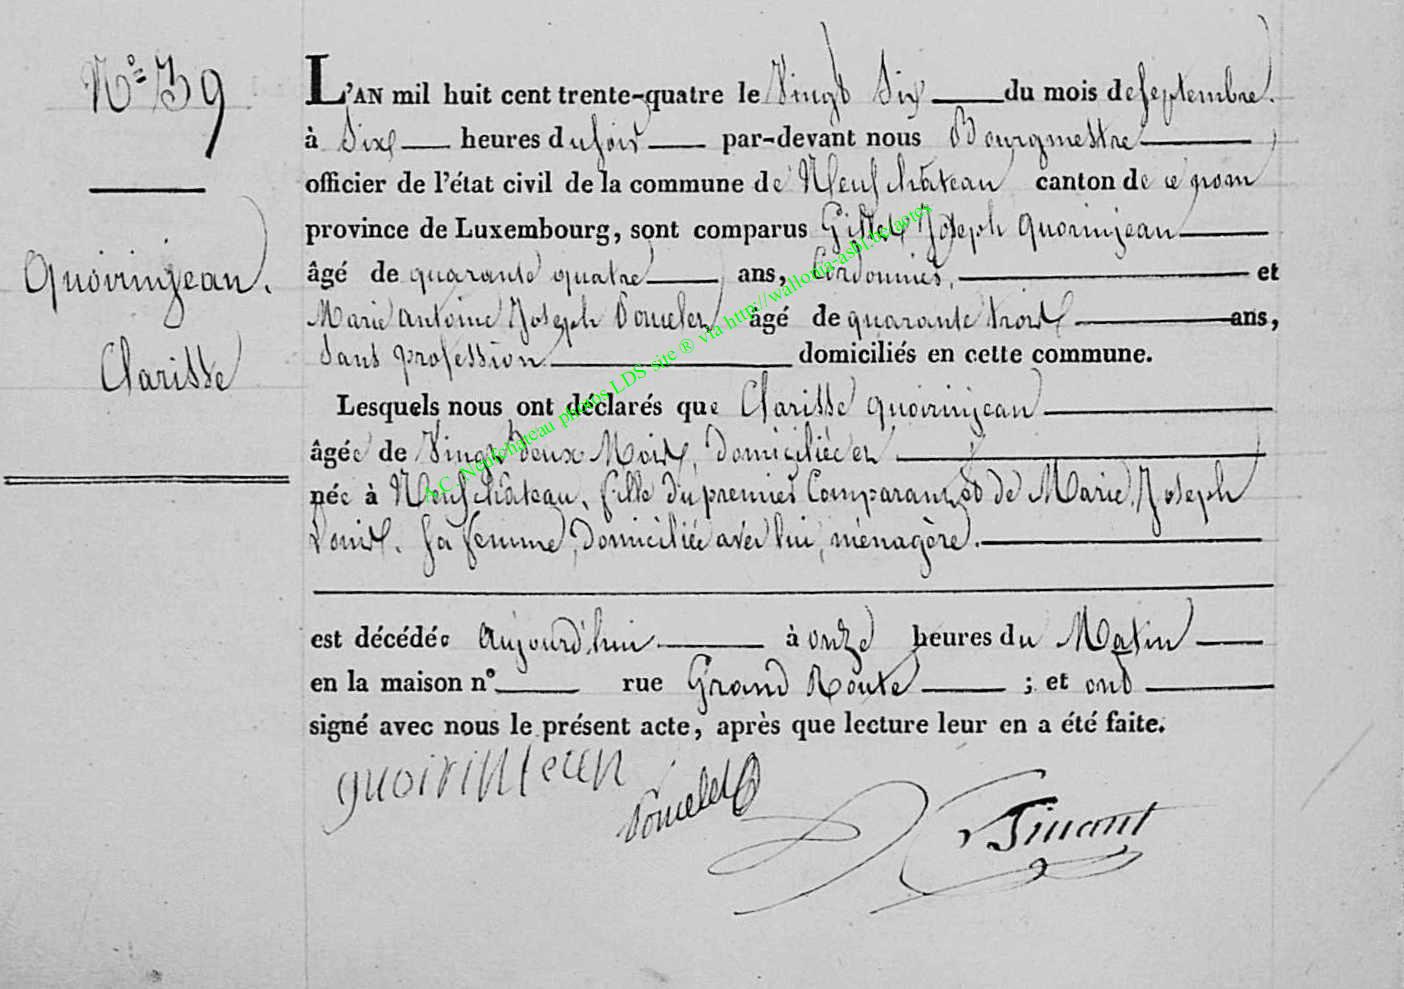 N° 39
Quoirinjean.
Clarisse
L'AN mil huit cent trente-quatre le Vingt Six du mois de Septembre.
à Six heures du soir par-devant nous Bourgmestre
officier de l'état civil de la commune de Neufchâteau canton de ce nom
province de Luxembourg, sont comparus Gilles Joseph Quoirinjean
âgé de quarante quatre ans, Cordonnier, et
Marie Antoine Joseph Poncelet âgé de quarante trois ans,
Sans profession domiciliés en cette commune.
Lesquels nous ont déclarés que Clarisse quoirinjean
âgée de Vingt Deux Mois, Domiciliée et
née à Neufchâteau, fille du premier Comparant et de Marie, Joseph
Louis. sa femme, Domiciliée avec lui, ménagère.
est décédée aujourd'hui à onze heures du Matin
en la maison n° rue Grand Route ; et ont
signé avec nous le présent acte, après que lecture leur en a été faite.
quoirinjean
Poncelet
Dinant
A.C. Neufchateau photos LDS site ® via http://wallonia-asbl.be/actes